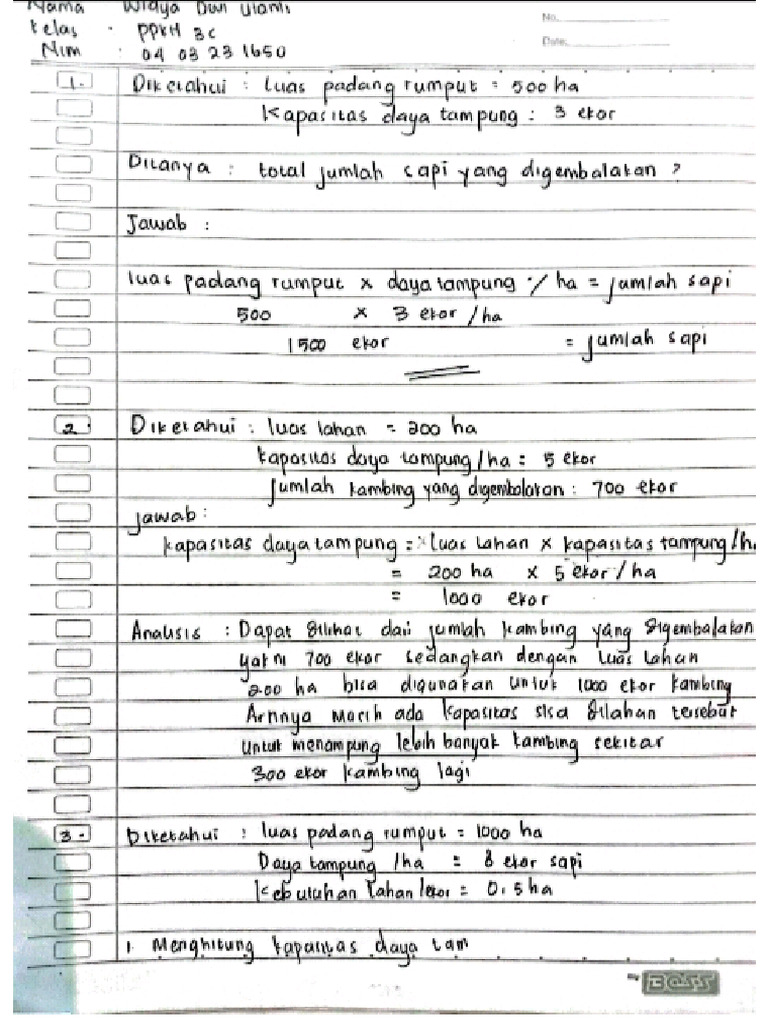 Nama Widya Dwi Utami
Kelas : PPKH 3C
Nim : 04 03 23 1650
No.
Date.
1. Diketahui : luas padang rumput = 500 ha
Kapasitas daya tampung : 3 ekor
Ditanya : total jumlah sapi yang digembalakan ?
Jawab :
luas padang rumput x daya tampung / ha = jumlah sapi
500 x 3 ekor / ha
1500 ekor = jumlah sapi
2. Diketahui : luas lahan = 200 ha
kapasitas daya tampung / ha : 5 ekor
Jumlah kambing yang digembalakan : 700 ekor
jawab :
kapasitas daya tampung = luas lahan x kapasitas tampung / ha
= 200 ha x 5 ekor / ha
= 1000 ekor
Analisis : Dapat dilihat dari jumlah kambing yang digembalakan
yakni 700 ekor sedangkan dengan luas lahan
200 ha bisa digunakan untuk 1000 ekor kambing
Artnya masih ada kapasitas sisa dilahan tersebut
untuk menampung lebih banyak kambing sekitar
300 ekor kambing lagi
3. Diketahui : luas padang rumput = 1000 ha
Daya tampung / ha = 8 ekor sapi
Kebutuhan lahan / ekor = 0,5 ha
1. Menghitung kapasitas daya tam
BOSS